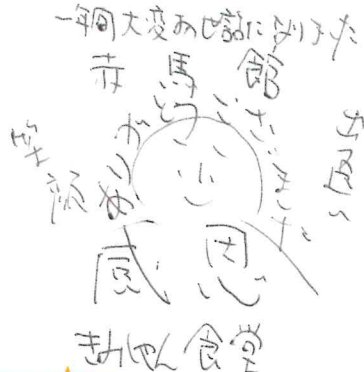 一年間大変お世話になりました
赤馬館
ありがとうございました
笑顔
出逢い
感恩
きみしゃん食堂